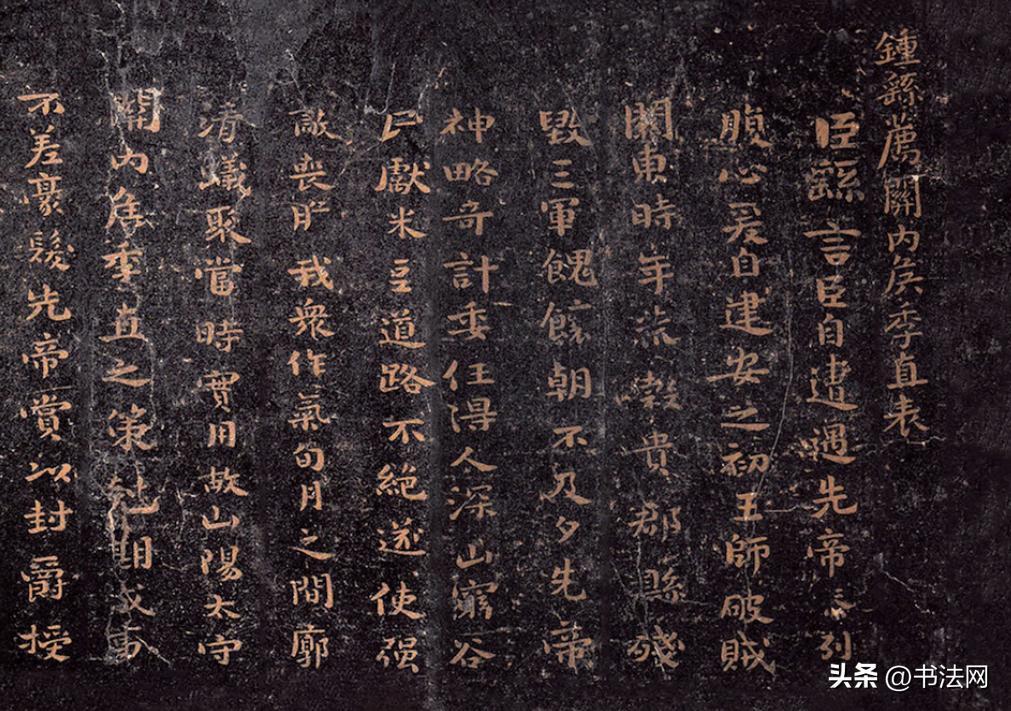 鍾繇薦關内侯季直表
臣繇言臣自遭遇先帝忝列
腹心爰自建安之初王師破賊
關東時年荒穀貴郡縣殘
毀三軍餽饟朝不及夕先帝
神略奇計委任得人深山窮谷
民獻米豆道路不絕遂使强
敵喪膽我衆作氣旬月之間廓
清蟻聚當時實用故山陽太守
關内侯季直之策尅期成事
不差豪髮先帝賞以封爵授
头条 @书法网